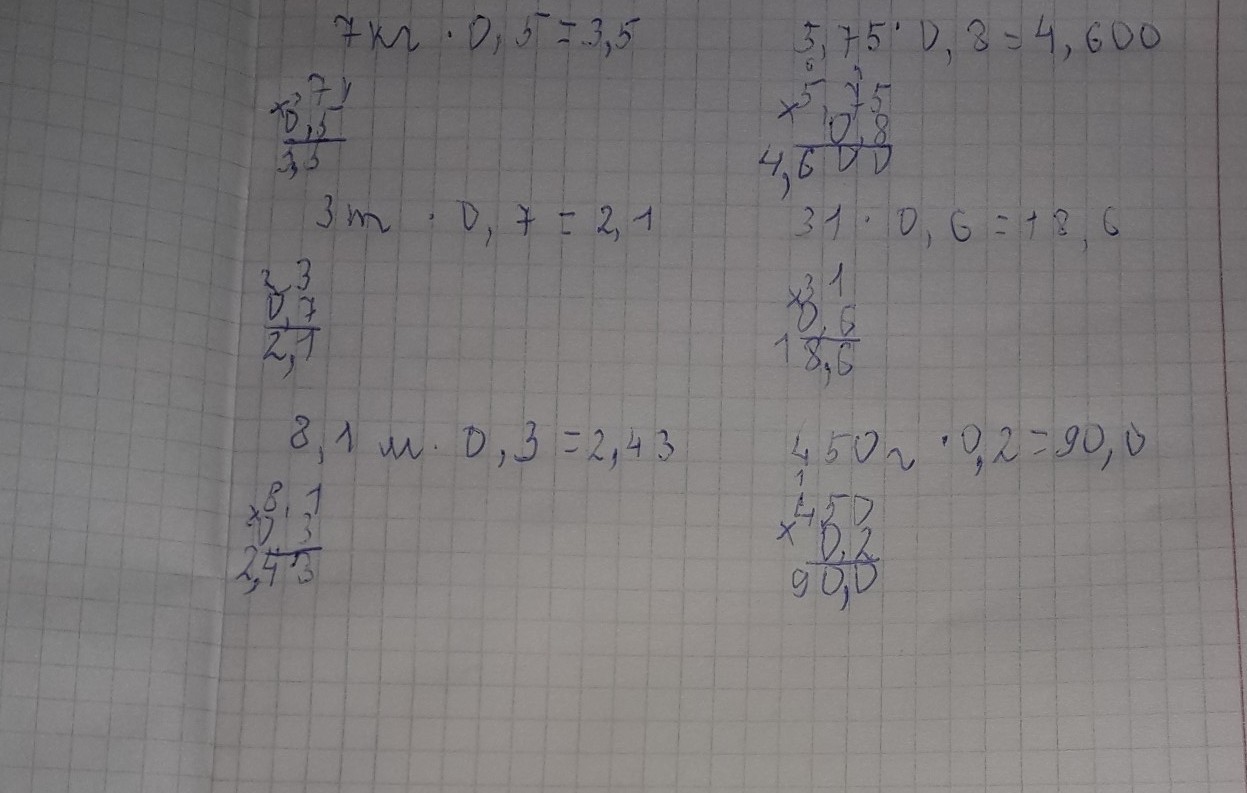 7кг · 0,5 = 3,5
× 7
0,5
3,5
5,75 · 0,8 = 4,600
× 5,75
0,8
4,600
3т · 0,7 = 2,1
× 3
0,7
2,1
31 · 0,6 = 18,6
× 31
0,6
18,6
8,1 м · 0,3 = 2,43
× 8,1
0,3
2,43
450г · 0,2 = 90,0
1
× 450
0,2
90,0